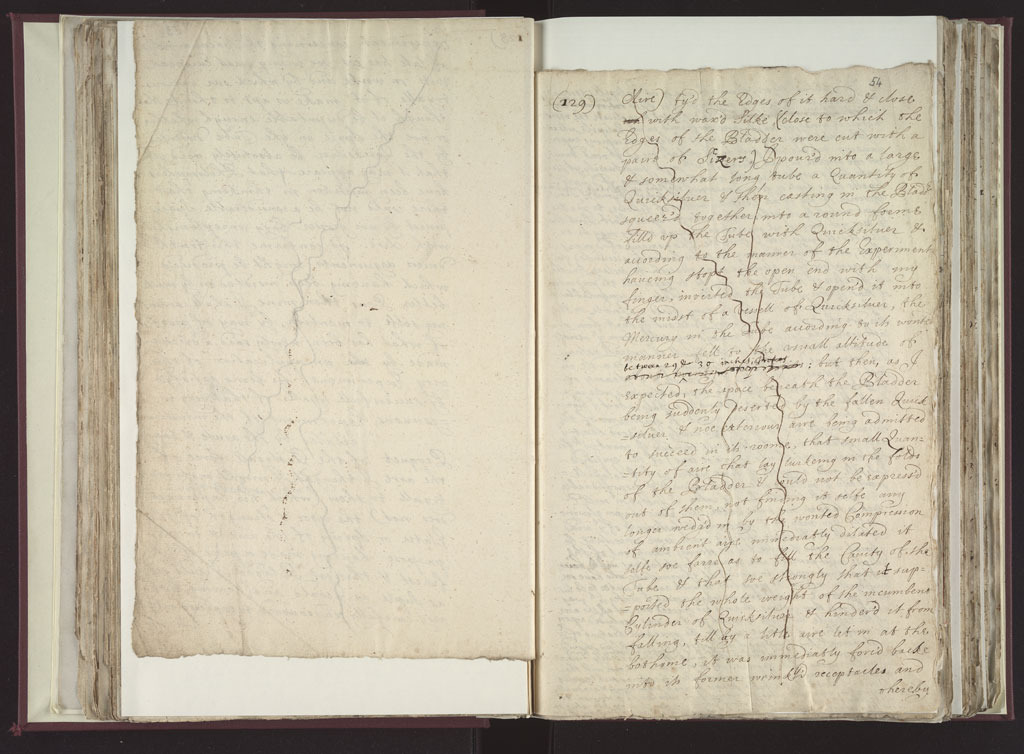 54
(129)
Aire) ty'd the Edges of it hard & close
with wax'd Silke (close to which the
Edges of the Bladder were cut with a
paire of Sizers) I pour'd into a large
& somewhat long tube a Quantity of
Quicksilver & then casting in the Bladd
squeez'd together into a round forme
fill'd up the Tube with Quicksilver &
according to the manner of the Experiment
haueing stopt the open end with my
finger, inverted the Tube & open'd it into
the midst of a vessell of Quicksilver, the
Mercury in the Tube according to its wonted
manner fell to the small altitude of
betwen 29 & 30 inches : but then, as I
expected, the space beneath the Bladder
being suddenly deserted by the fallen Quick
=silver, & noe exteriour aire being admitted
to succeed in its roome, that small Quan=
=tity of aire that lay lurkeing in the folds
of the Bladder & could not be express'd
out of them, not finding it selfe any
longer in by the wonted Compression
of ambient aire immediatly dilated it
selfe soe farr as to fill the Cavity of the
Tube & that soe strongly that it sup=
=ported the whole weight of the incumbent
Cylinder of Quicksilver & hinder'd it from
falling, till by a little aire let in at the
bottome, it was immediatly forc'd backe
into its former wrinkl'd receptacles and
thereby